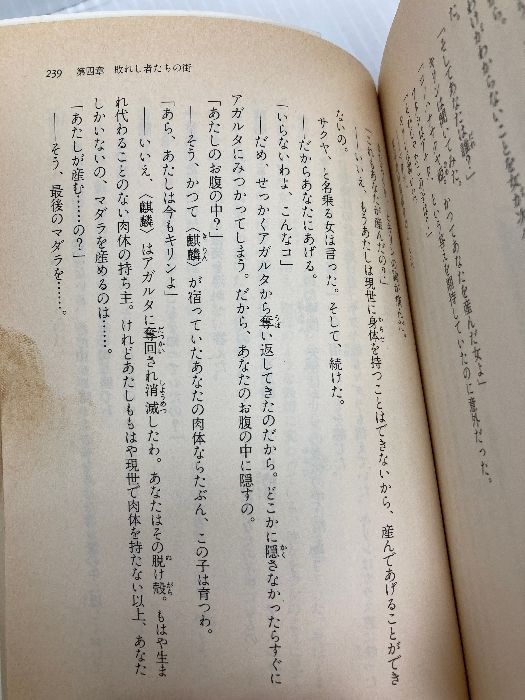 わけがわからないことを女が
だ。
「そしてあなたは誰？」
キリンは聞いてみた。
かつてあなたを産んだ女よ」
という答えを期待していたのに意外だった。
「これもあなたが産んだの？」
――いいえ、もうあたしは現世に身体を持つことはできないから、産んであげることができ
ないの。
サクヤ、と名乗る女は言った。そして、続けた。
――だからあなたにあげる。
「いらないわよ、こんなコ」
――だめ、せっかくアガルタから奪い返してきたのだから。どこかに隠さなかったらすぐに
アガルタにみつかってしまう。だから、あなたのお腹の中に隠すの。
「あたしのお腹の中？」
――そう、かつて〈麒麟〉が宿っていたあなたの肉体ならたぶん、この子は育つわ。
「あら、あたしは今もキリンよ」
――いいえ、〈麒麟〉はアガルタに奪回され消滅したわ。あなたはその脱け殻。もはや生ま
れ代わることのない肉体の持ち主。けれどあたしももはや現世で肉体を持たない以上、あなた
しかいないの、マダラを産めるのは……。
「あたしが産む……の？」
――そう、最後のマダラを……。
239 第四章 敗れし者たちの街